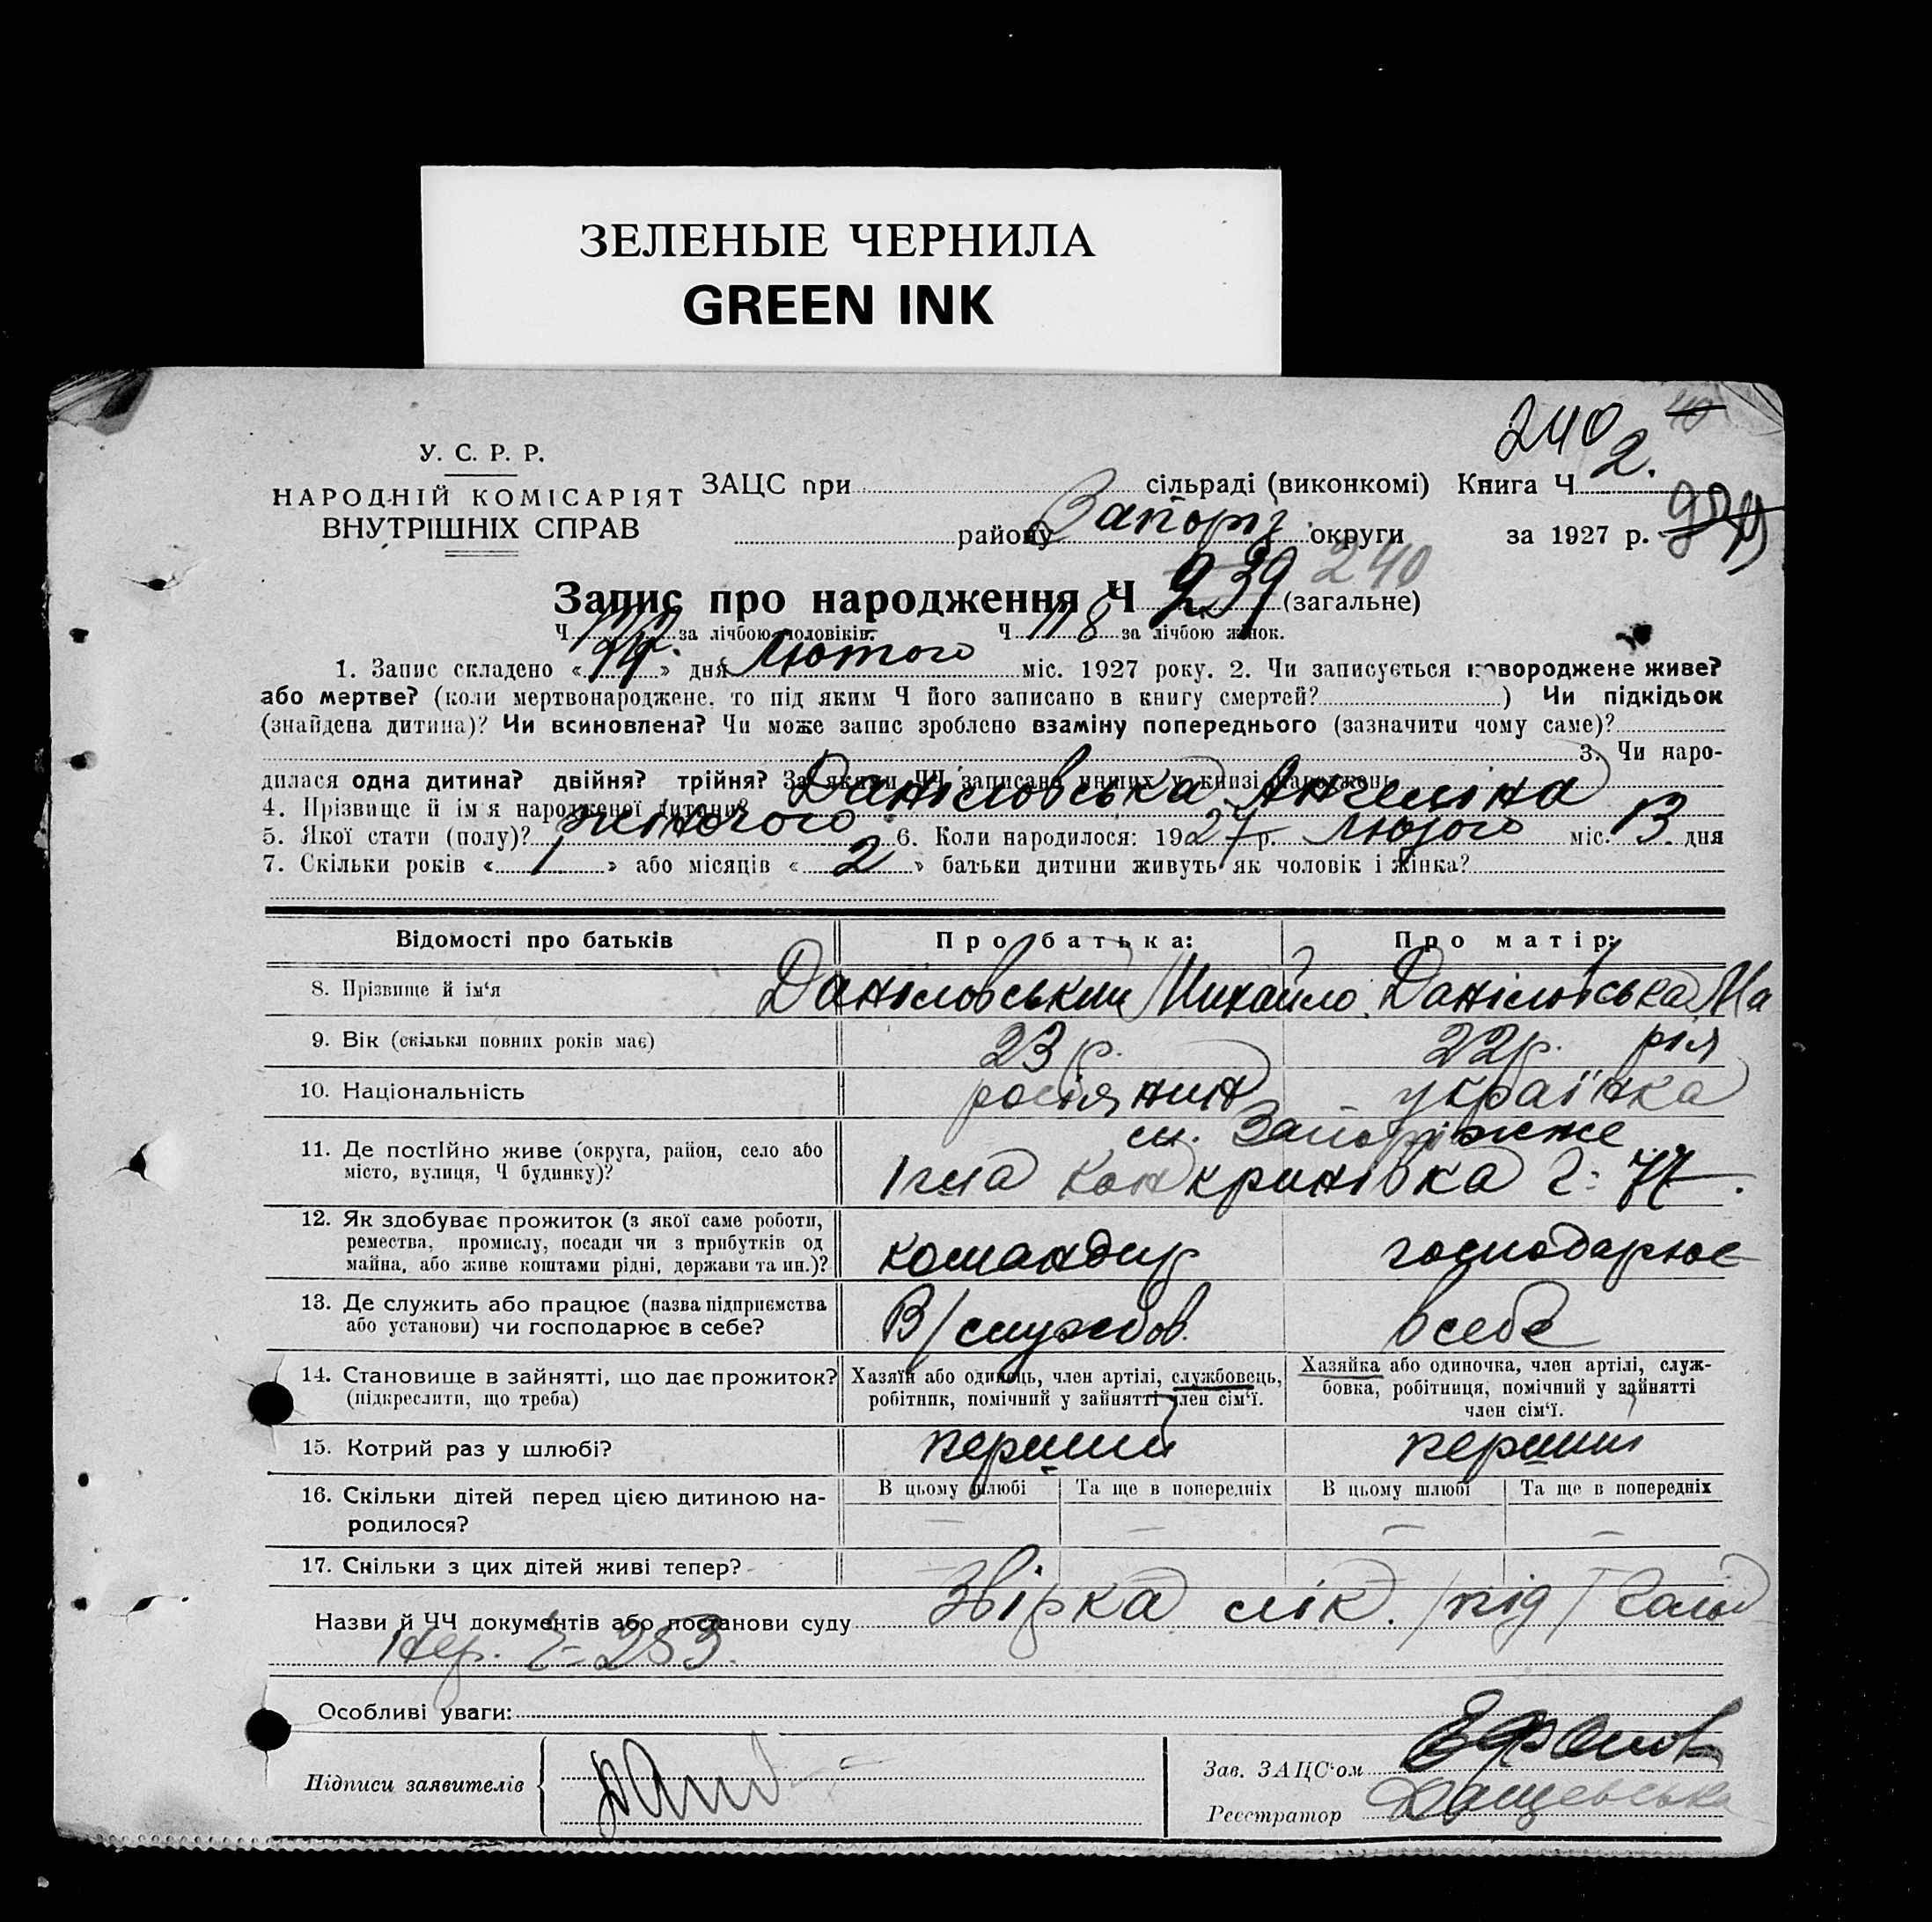 ЗЕЛЕНЫЕ ЧЕРНИЛА
GREEN INK
240
2.
У. С. Р. Р.
НАРОДНІЙ КОМІСАРІЯТ
ВНУТРІШНІХ СПРАВ
ЗАЦС при сільраді (виконкомі) Книга Ч
району Запоріз округи за 1927 р.
Запис про народження Ч 239 240 (загальне)
Ч за лічбою чоловіків. Ч 118 за лічбою жінок.
1. Запис складено « » дня Лютого міс. 1927 року. 2. Чи записується новороджене живе?
або мертве? (коли мертвонароджене, то під яким Ч його записано в книгу смертей? ) Чи підкідьок
(знайдена дитина)? Чи всиновлена? Чи може запис зроблено взаміну попереднього (зазначити чому саме)?
3. Чи наро-
дилася одна дитина? двійня? трійня? За якими ЧЧ записано инших у книзі народжень
4. Прізвище й ім'я народженої дитини? Даніловська Ангеліна
5. Якої стати (полу)? жіночого 6. Коли народилося: 1927 р. Лютого міс. 13. дня
7. Скільки років « 1 » або місяців « 2 » батьки дитини живуть як чоловік і жінка?
Відомості про батьків Про батька: Про матір:
8. Прізвище й ім'я Даніловський Михайло. Даніловська Марія
9. Вік (скільки повних років має) 23 р. 22 р.
10. Національність росіянин українка
11. Де постійно живе (округа, район, село або місто, вулиця, Ч будинку)? м. Запоріжже
77.
12. Як здобуває прожиток (з якої саме роботи, ремества, промислу, посади чи з прибутків од майна, або живе коштами рідні, держави та ин.)? командир господарює
13. Де служить або працює (назва підприємства або установи) чи господарює в себе? В/службов. в себе
14. Становище в зайнятті, що дає прожиток? (підкреслити, що треба)
Хазяїн або одинець, член артілі, службовець, робітник, помічний у зайнятті член сім'ї.
Хазяйка або одиночка, член артілі, служ-
бовка, робітниця, помічний у зайнятті
член сім'ї.
15. Котрий раз у шлюбі? перший перший
16. Скільки дітей перед цією дитиною на-
родилося?
В цьому шлюбі Та ще в попередніх В цьому шлюбі Та ще в попередніх
— — — —
17. Скільки з цих дітей живі тепер?
Назви й ЧЧ документів або постанови суду Звірка лік.
253.
Особливі уваги:
Підписи заявителів
Зав. ЗАЦС'ом
Реєстратор Дащевська